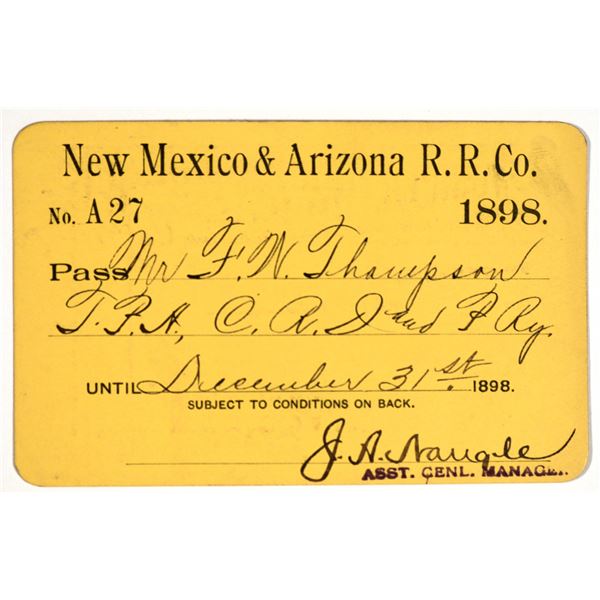 New Mexico & Arizona R. R. Co.
No. A 27 1898.
Pass Mr F. W. Thompson
T. P. A., C. R. I and P Ry.
UNTIL December 31st. 1898.
SUBJECT TO CONDITIONS ON BACK.
J. A. Naugle
ASST. GENL. MANAGE..